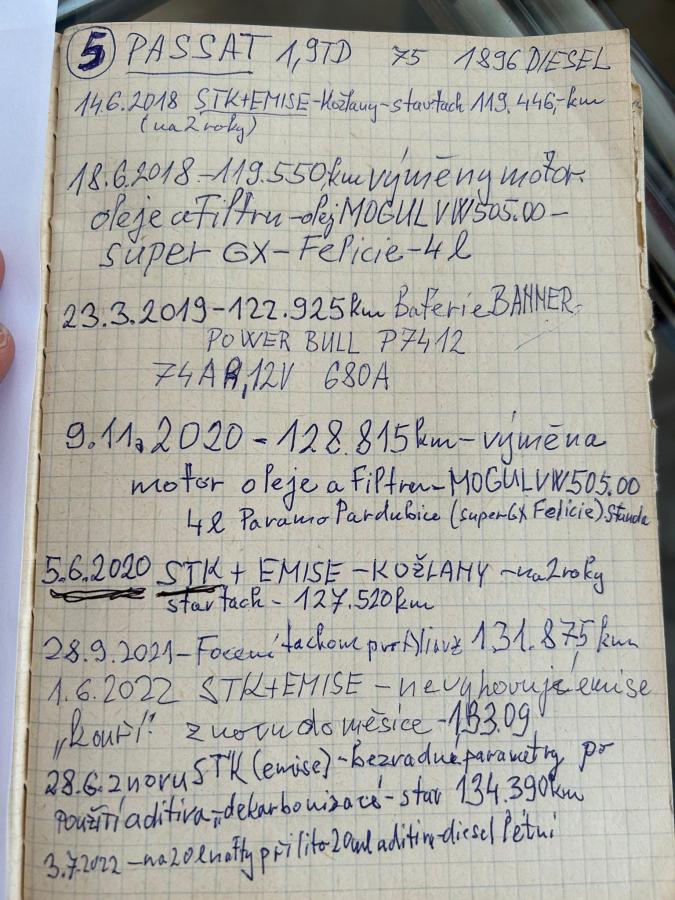 5 PASSAT 1,9TD 75 1896 DIESEL
14.6.2018 STK+EMISE-Kožlany-stavtach 119.446,-km
(na 2 roky)
18.6.2018-119.550,km výměny motor.
oleje a Filtru-olej MOGUL VW505.00-
super GX-Felicie-4l
23.3.2019-122.925km Baterie BANNER-
POWER BULL P7412
74AA,12V 680A
9.11.2020-128.815km-výměna
motor oleje a Filtru-MOGUL VW505.00
4l Paramo Pardubice (superGX Felicie).
5.6.2020 STK + EMISE-KOŽLANY-na 2 roky
stav tach-127.520km
28.9.2021-Focení tachom 131.875km
1.6.2022 STK+EMISE-nevyhovuje emise
„kouří" znovu do měsíce
28.6.znovu STK(emise)-bezvadné parametry po
použití aditiva-„dekarbonizace-stav 134.390km
3.7.2022-na 20l nafty přilito 20ml aditiva-diesel letní